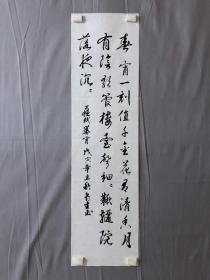 春宵一刻值千金花有清香月
有陰歌管樓臺聲細〻鞦韆院
落夜沉〻
蘇軾春宵 戊寅年